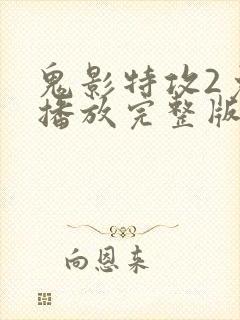 鬼影特攻2
播放完整版
向恩来